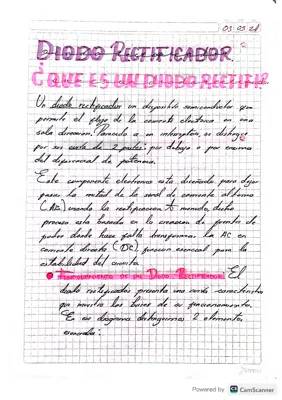 03-05-24
DIODO RECTIFICADOR.
¿QUE ES UN DIODO RECTIF
Un diodo rectificador un dispositivo semiconductor que
permite el flujo de la corriente electrica en una
sola direccion. Parecido a un interruptor, se distingue
por sus de 2 partes: por debajo o por encima
del de potencia.
Este componente electronico esta diseñado para dejar
pasar la mitad de la señal de corriente alterna
(AC) creando la rectificacion. A menudo, dicho
proceso esta basado en la creacion de fuente de
poder donde hace falta transformar la AC en
corriente directa (DC), funcion esencial para la
estabilidad del circuito.
DE UN DIODO RECTIFICADOR El
diodo rectificador presenta una curva caracteristica
que muestra las bases de su funcionamiento.
En su diagrama distinguimos 2 elementos
esenciales:
Powered by CS CamScanner